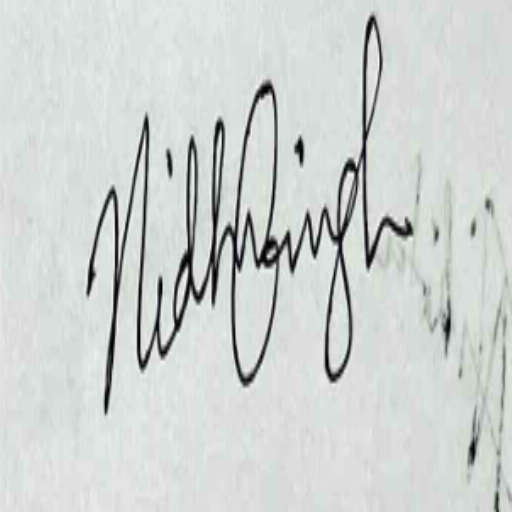 Nidhi Singh